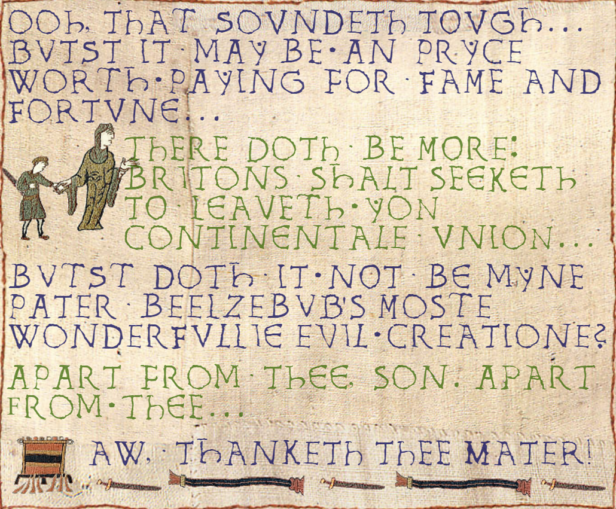 OOh, ThAT SOVNDETh TOVGh...
BVTST IT MAY BE AN PRYCE
WORTh PAYING FOR FAME AND
FORTVNE...
ThERE DOTh BE MORE:
BRITONS ShALT SEEKETh
TO LEAVETh YON
CONTINENTALE VNION...
BVTST DOTh IT NOT BE MYNE
PATER BEELZEBVB'S MOSTE
WONDERFVLLIE EVIL CREATIONE?
APART FROM ThEE, SON. APART
FROM ThEE...
AW, ThANKETh ThEE MATER!